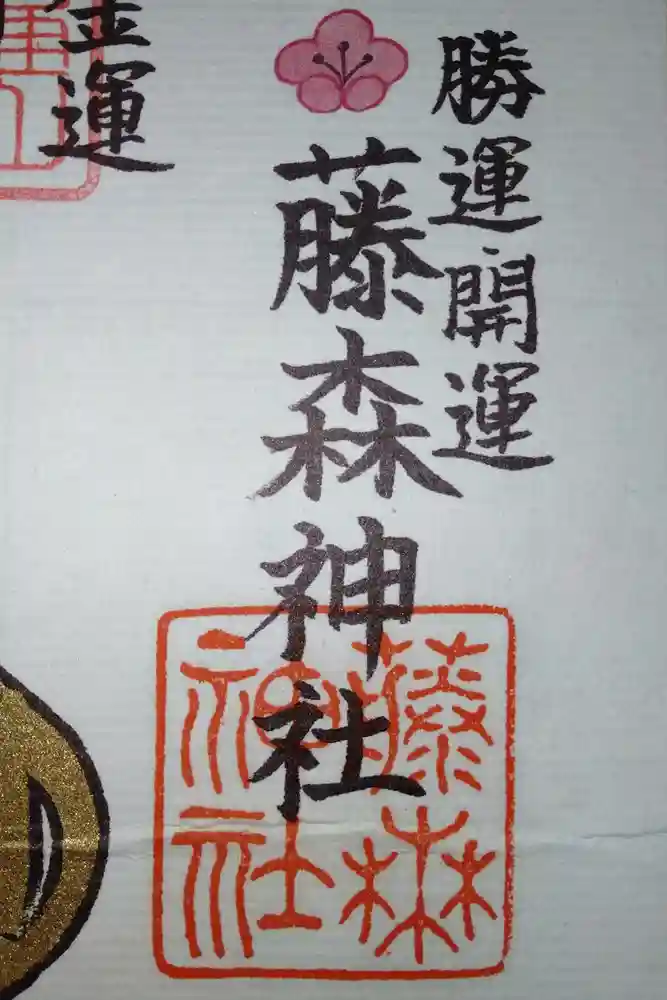 勝運開運
藤森神社
藤森
神社
金運